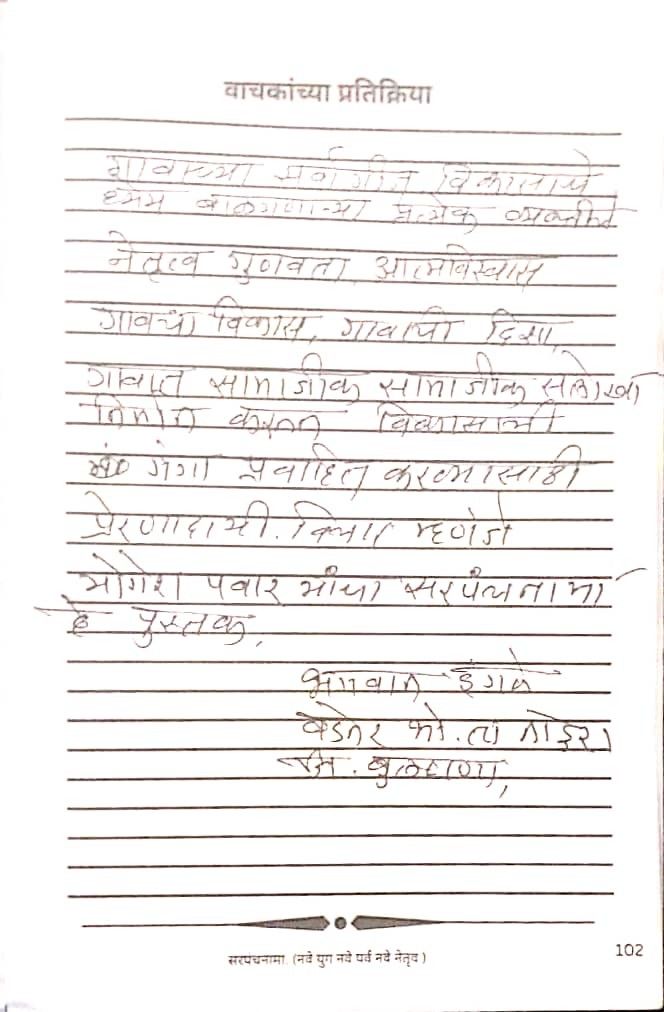 वाचकांच्या प्रतिक्रिया
गावाच्या सर्वांगीन विकासाचे
ध्येय बाळगणाऱ्या प्रत्येक व्यक्तीत
नेतृत्व गुणवता, आत्मविस्वास
गावचा विकास, गावाची दिशा,
गावात सामाजीक सामाजीक सलोखा
निर्मान करून विकासाची
गंगा प्रवाहित करण्यासाठी
प्रेरणादायी. विचार म्हणजे
योगेश पवार यांचा सरपंचनामा
हे पुस्तक,
भगवान इंगळे
वडनेर भो. ता नांदुरा
जि. बुलढाणा,
सरपंचनामा. (नवे युग नवे पर्व नवे नेतृव )
102